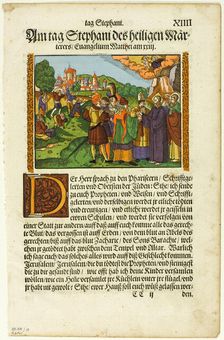 tag Stephani. XIIII
Am tag Stephani des heiligen Mär-
terers/ Euangelium Matthei am xxiij.
DEr Herr sprach zu den Phariseern/ Schrifftge-
lerten vnd Obersten der Jüden: Sihe/ ich sende
zu euch Propheten/ vnd Weisen/ vnd Schrifft-
gelerten/ vnd derselbigen werdet jr etliche tödten
vnd creutzigen/ vnd etliche werdet jr geisseln in
ewren Schulen/ vnd werdet sie verfolgen von
einer Stat zur andern/ auff daß auff euch komme alle das gerech-
te Blut/ das vergossen ist auff erden/ von dem blut an Abels des
gerechten/ biß auff das blut Zacharie/ des Sons Barachie/ wel-
chen jr getödtet habt zwischen dem Tempel vnd Altar. Warlich
ich sage euch/ das solches alles wird auff diß Geschlecht kommen.
Jerusalem/ Jerusalem/ die du tödtest die Propheten/ vnd steinigst
die zu dir gesandt sind/ wie offt hab ich deine Kinder versamlen
wöllen/ wie ein Helle versamlet jre Küchlein vnter jre flügel/ vnd
jr habt nit gewolt/ Sihe/ ewer Hauß sol euch wüst gelassen wer-
CC ij den.